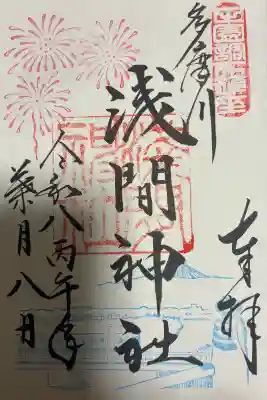 奉拝
多摩川
浅間神社
令和八丙午年
葉月八日